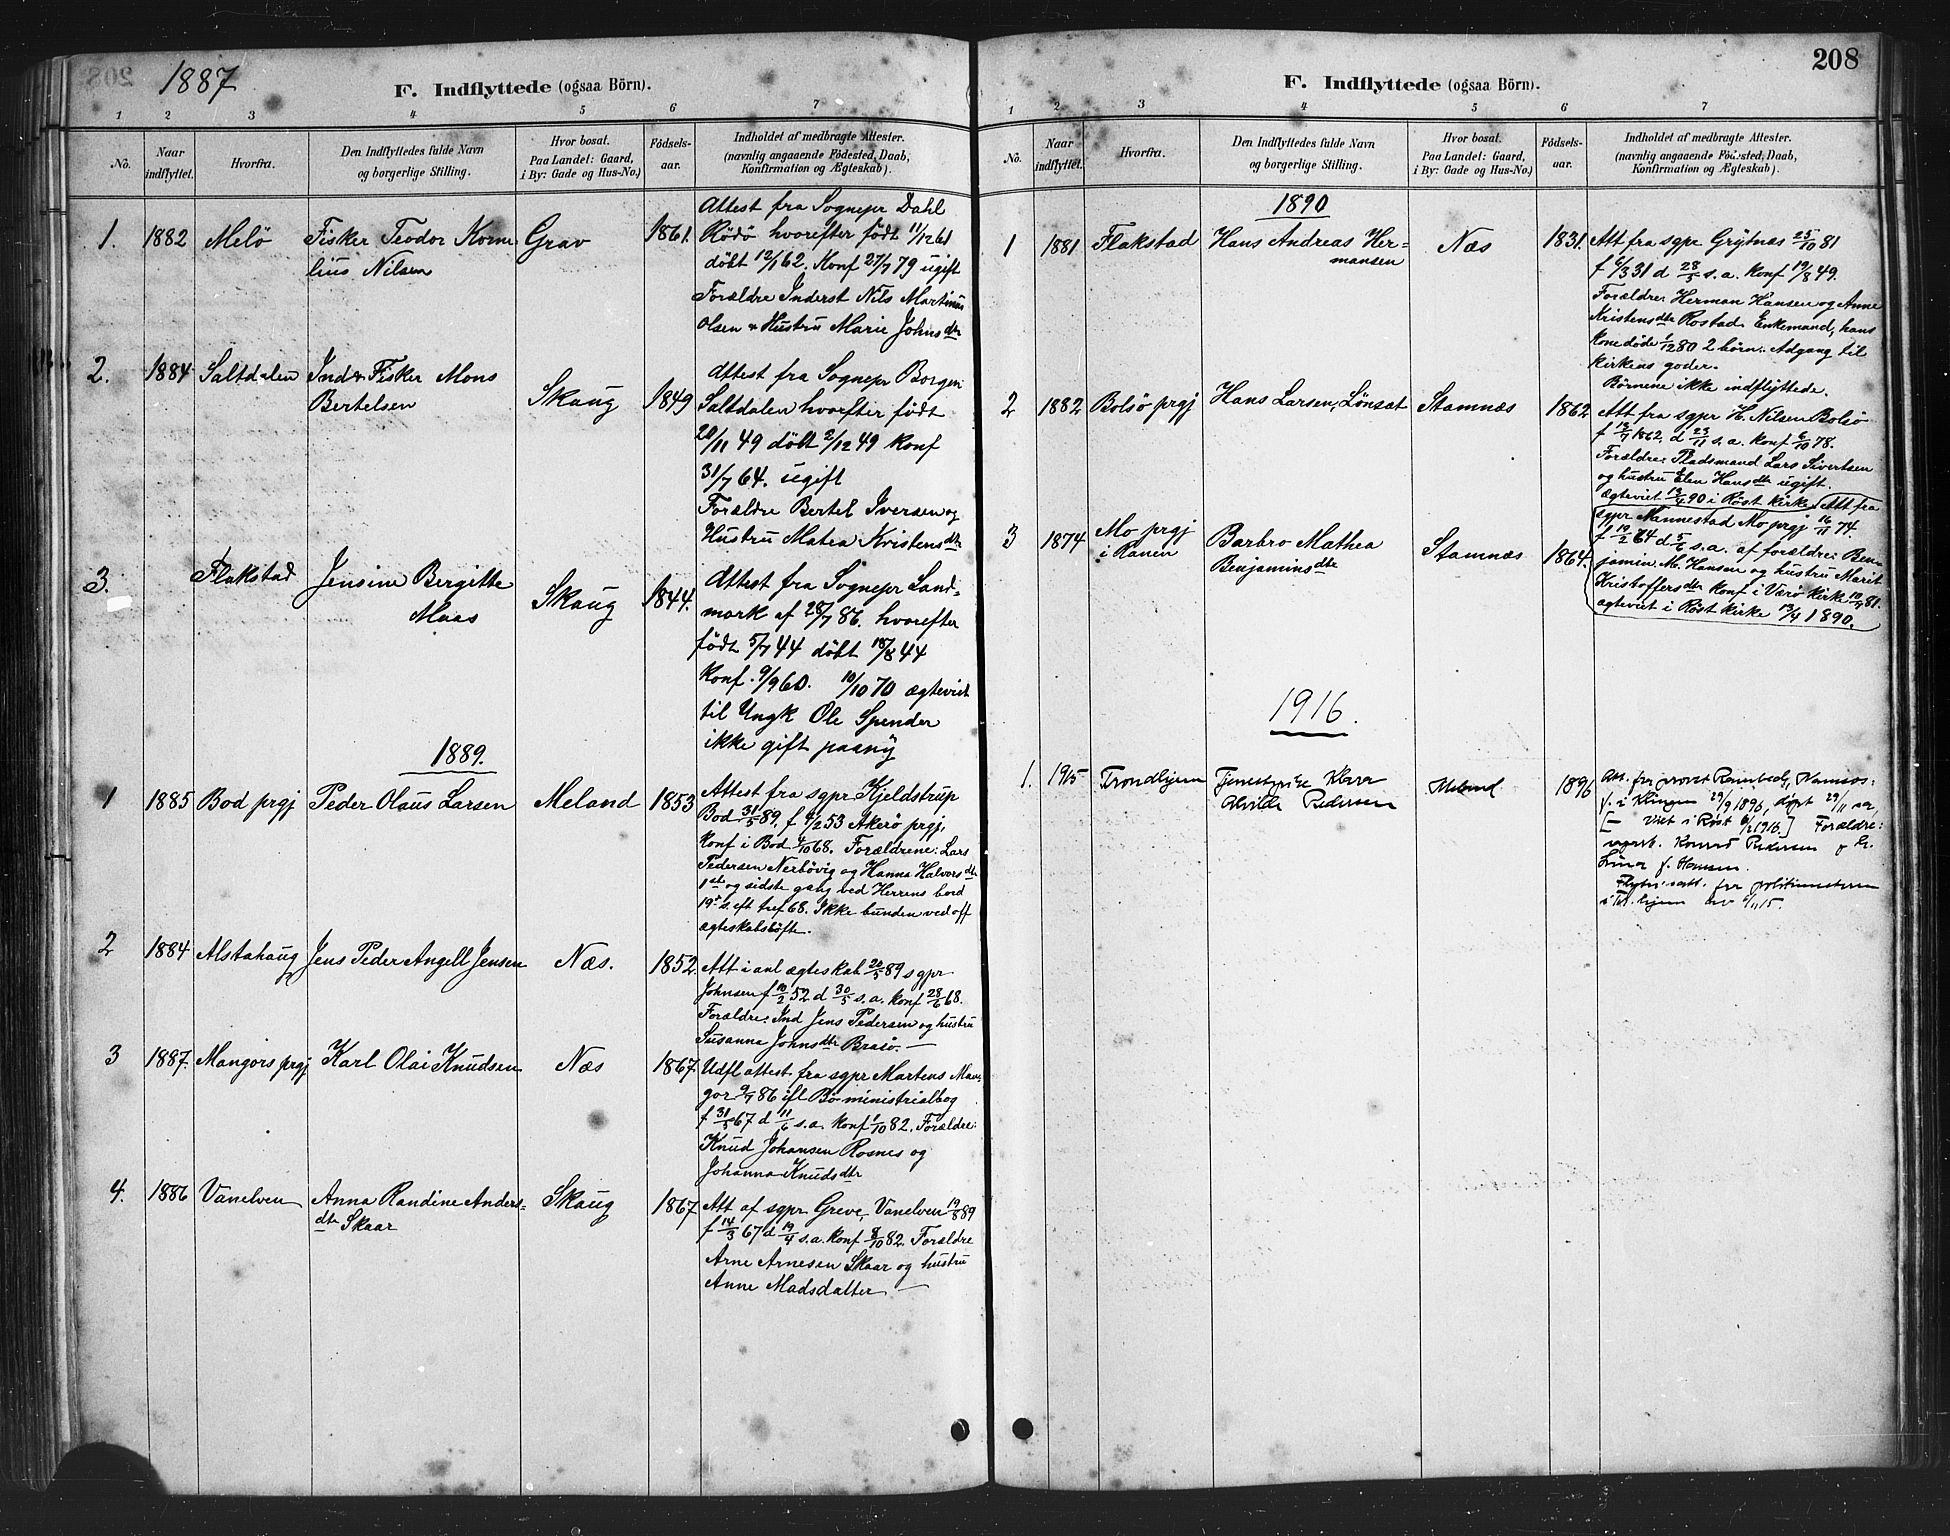 1887
F. Indflyttede (ogsaa Börn).
1 2 3 4 5 6 7
No.
Naar
indflyttet.
Hvorfra.
Den Indflyttedes fulde Navn
og borgerlige Stilling.
Hvor bosat.
Paa Landet: Gaard,
i By: Gade og Hus-No.)
Födsels-
aar.
Indholdet af medbragte Attester.
(navnlig angaaende Födested, Daab,
Konfirmation og Ægteskab).
1. 1882 Melö
Fisker Teodor Korne
lius Nilsen
Grav
1861.
Attest fra Sognepr Dahl
Rödö hvorefter født 11/12 61
döbt 12/1 62. Konf 27/7 79 ugift
Forældre Inderst Nils Martinus
Olsen & Hustru Marie Johnsdtr
2. 1884 Saltdalen
Ind & Fisker Mons
Bertelsen
Skaug
1849
Attest fra Sognepr Borgen
Saltdalen hvorefter født
20/11 49 döbt 2/12 49 Konf
31/7 64. ugift
Forældre Bertel Iversen og
Hustru Matea Kristensdtr
3. Flakstad
Jensine Bergitte
Maas
Skaug
1844.
Attest fra Sognepr Land-
mark af 28/7 86. hvorefter
født 5/7 44 döbt 18/8 44
Konf. 9/9 60. 10/10 70 ægteviet
til Ungk Ole Spender
ikke gift paany
1889.
1 1885 Bod prgj Peder Olaus Larsen Meland 1853
Attest fra sgpr Kjeldstrup
Bod 31/5 89. f 4/2 53 Akerö prgj.
Konf i Bod 4/10 68. Forældrene: Lars
Pedersen Nerbövig og Hanna Halvorsdtr
1ste og sidste gang ved Herrens bord
19s. eft tref 68. Ikke bunden ved off
ægteskabslöfte.
2 1884 Alstahaug Jens Peder Angell Jensen Næs. 1852
Att i anl ægteskab 20/5 89 sgpr
Johnsen f 10/2 52 d 30/5 s.a. konf 28/6 68.
Forældre: Ind Jens Pedersen og hustru
Susanna Johnsdtr Brasö. —
3 1887. Mangors prgj Karl Olai Knudsen Næs 1867
Udfl attest fra sgpr Martens Man-
gor 9/7 86 ifl Bö ministrialbog
f 31/5 67 d 11/6 s.a. konf 1/10 82. Forældre:
Knud Johansen Rosnes og
Johanna Knudsdtr
4. 1886 Vanelven
Anna Randine Anders-
dtr Skaar
Skaug
1867
Att af sgpr Greve, Vanelven 19/8 89
f 14/3 67 d 19/4 s.a. konf 8/10 82. Forældre
Arne Arnesen Skaar og hustru
Anne Madsdatter —
208
F. Indflyttede (ogsaa Börn).
1 2 3 4 5 6 7
No.
Naar
indflyttet.
Hvorfra.
Den Indflyttedes fulde Navn
og borgerlige Stilling.
Hvor bosat.
Paa Landet: Gaard,
i By: Gade og Hus-No.)
Födsels-
aar.
Indholdet af medbragte Attester.
(navnlig angaaende Födested, Daab,
Konfirmation og Ægteskab).
1890
1 1881 Flakstad
Hans Andreas Her-
mansen
Næs
1831.
Att fra sgpr Grytnæs 25/10 81
f 6/3 31 d 28/5 s.a. konf 19/8 49.
Forældre Herman Hansen og Anne
Kristensdtr Rostad. Enkemand, hans
kone döde 1/12 80 2 börn. Adgang til
kirkens goder.
Börnene ikke indflyttede.
2 1882 Bolsö prgj Hans Larsen, Lönset Stamnæs 1862
Att fra sgpr H. Nilsen Bolsö
f 12/7 1862, d 23/11 s.a. konf 6/10 78.
Forældre: Pladsmand Lars Sivertsen
og hustru Elen Hansdtr ugift.
Ægteviet 13/4 90 i Röst kirke.
3 1874
Mo prgj
i Ranen
Barbro Mathea
Benjaminsdtr
Stamnæs
1864.
Att fra
sgpr Nannestad Mo prgj 16/11 74.
f 19/2 64 d 5/6 s.a. af forældre: Ben-
jamin M. Hansen og hustru Marit
Kristoffersdtr konf i Værö kirke 10/7 81.
ægteviet i Röst kirke 13/4 1890.
1916.
1. 1915 Trondhjem
Tjenestepike Klara
Alvilde Pedersen
Meland
1896
Att. fra provst Namsos:
f. i Klingen 29/9 1896, döpt 29/11 s.a.
[— Viet i Røst 6/2 1916.] Forældre:
Konrad Pedersen og h.
Lina f. Hansen.
Flytn.att. fra politimesteren
i Tr.hjem